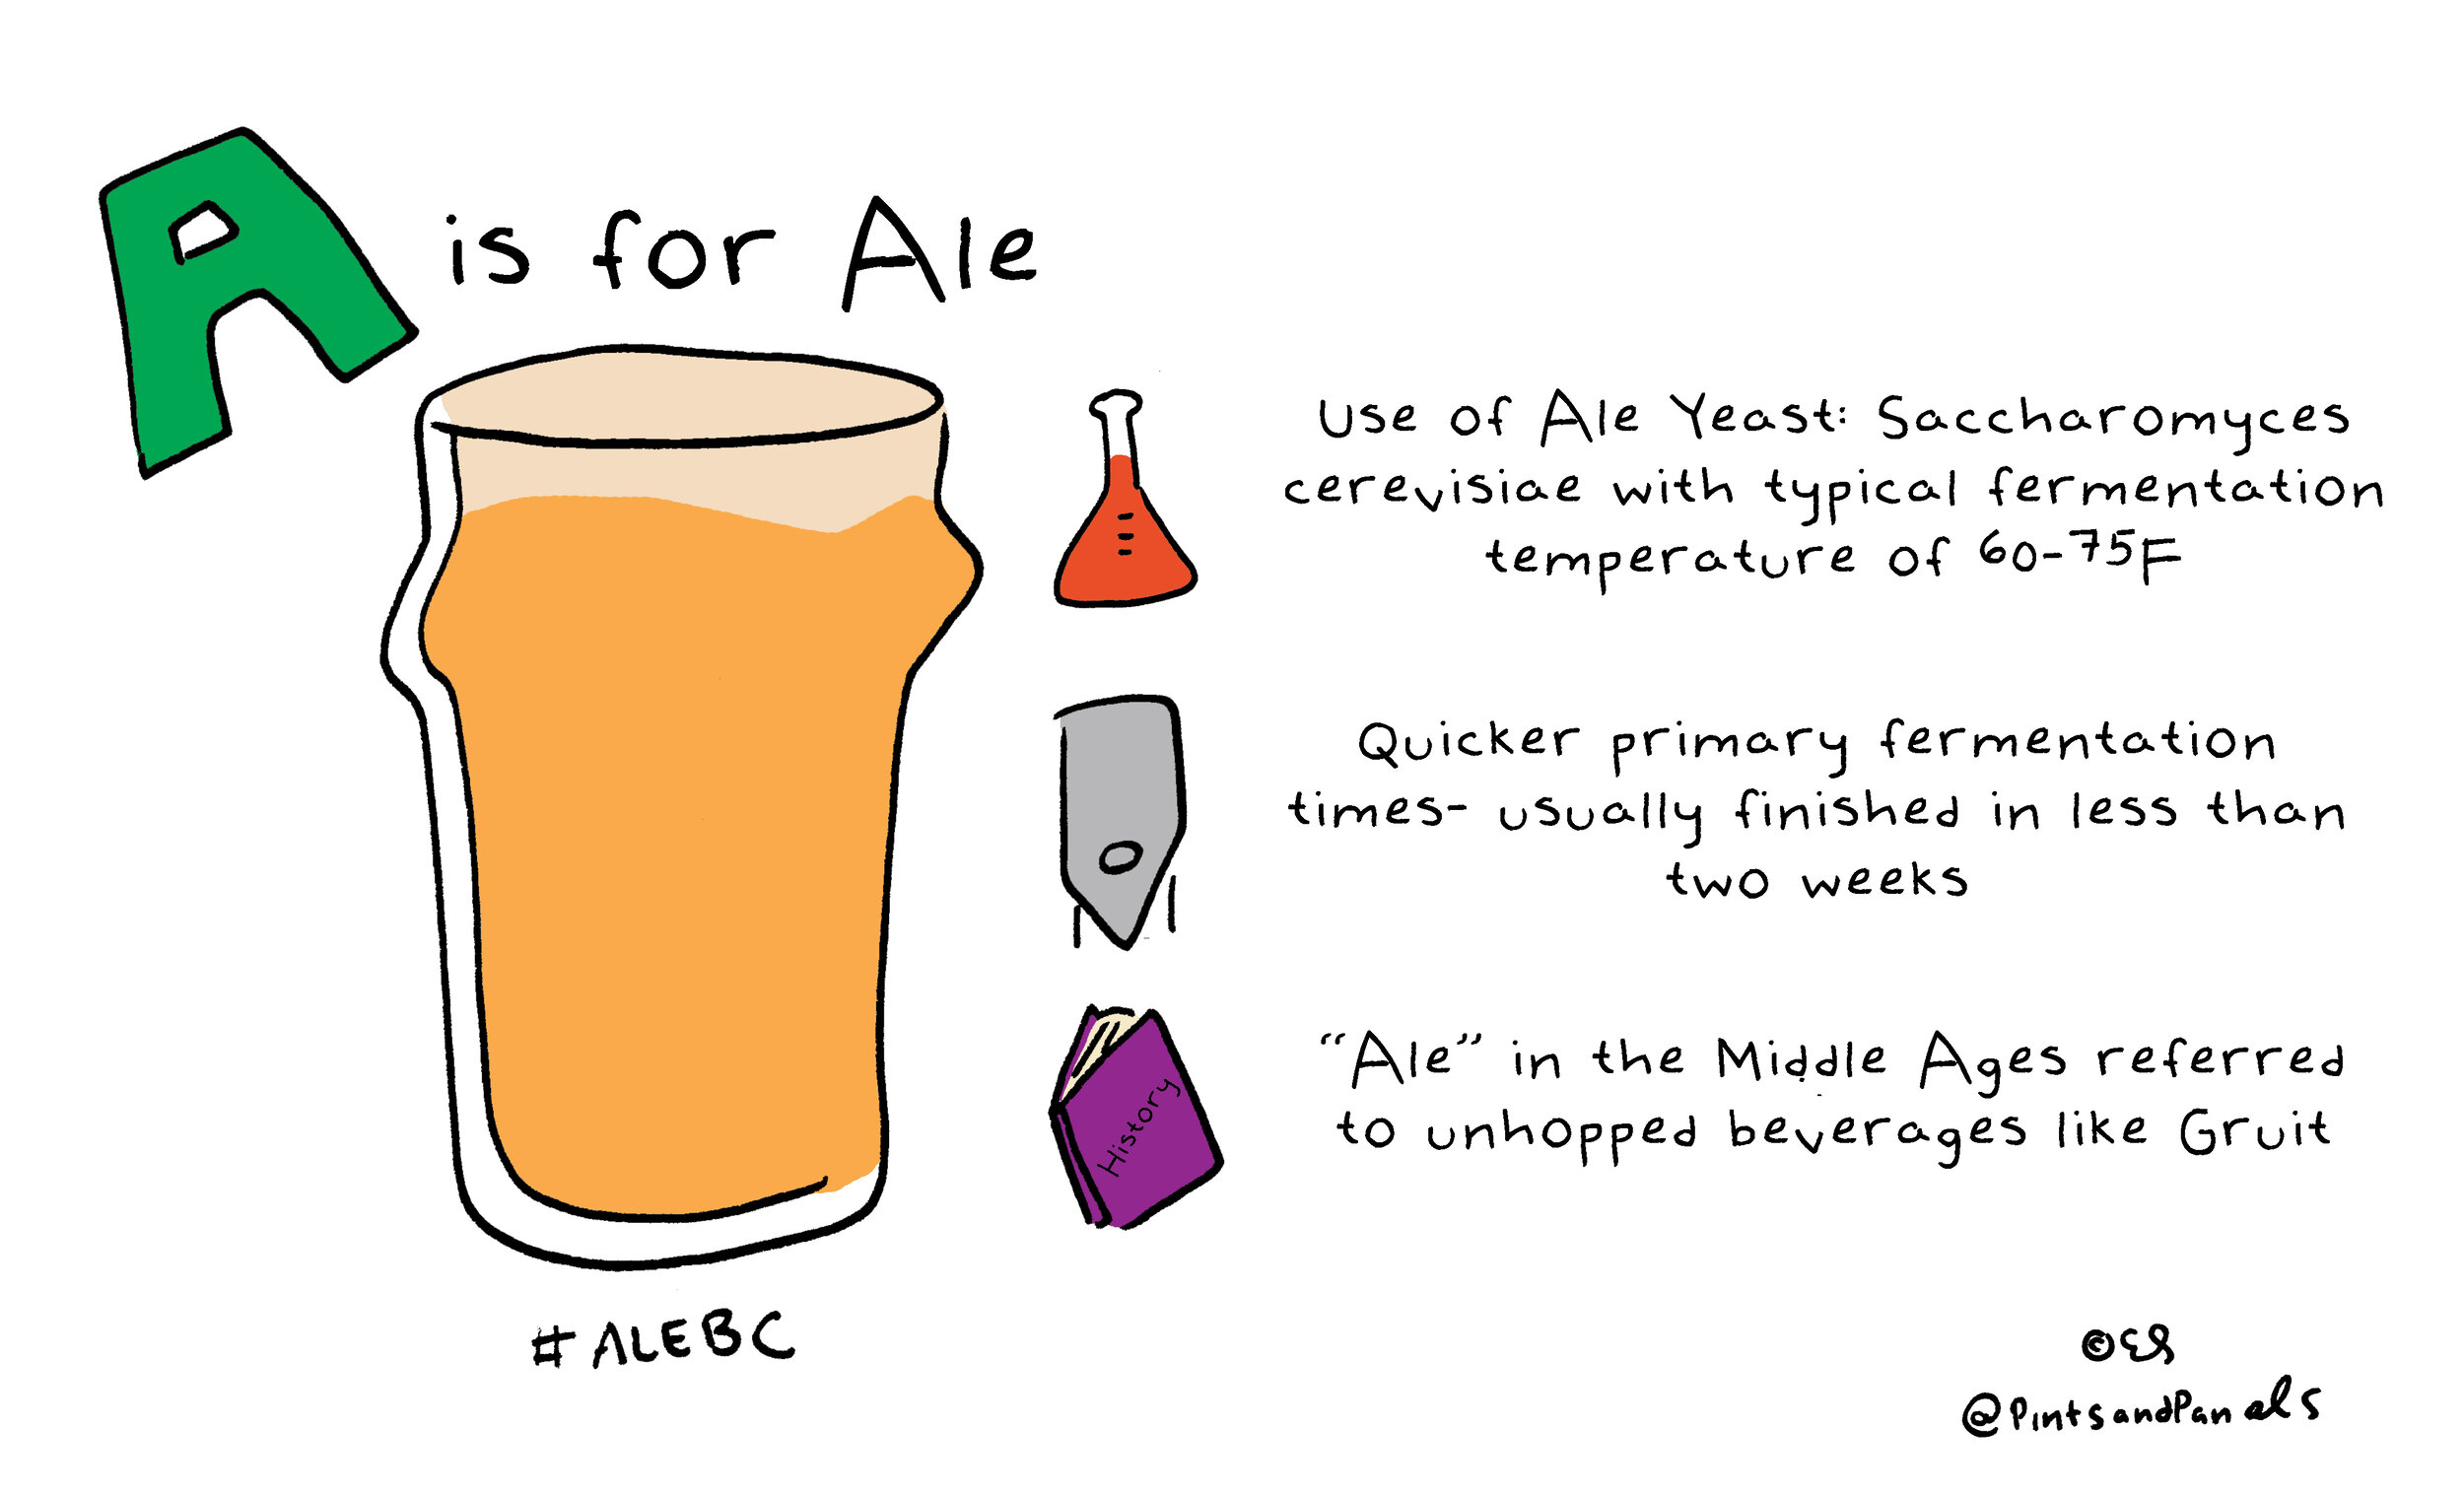 A is for Ale
Use of Ale Yeast: Saccharomyces
cerevisiae with typical fermentation
temperature of 60-75F
Quicker primary fermentation
times- usually finished in less than
two weeks
History
"Ale" in the Middle Ages referred
to unhopped beverages like Gruit
#ALEBC
© ES
@PintsandPanels